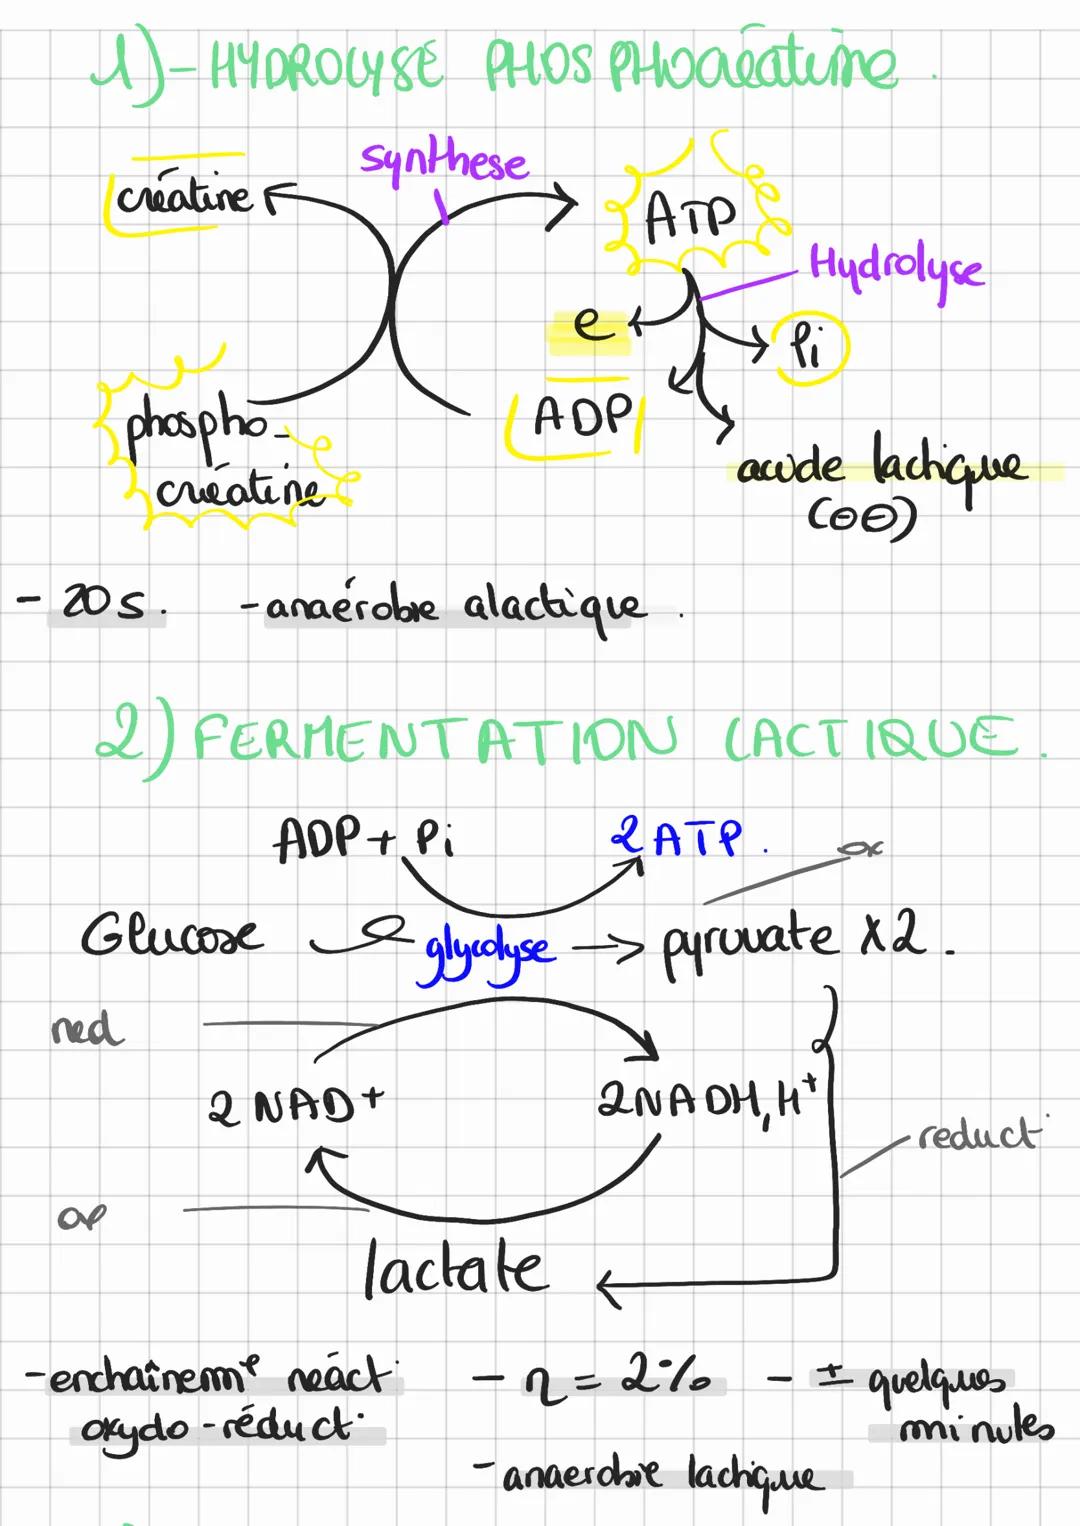 1)- HYDROLYSE PHOSPHOcréatine.
synthese
créatine
ATP
Hydrolyse
e
Pi
phospho-
créatine
ADP
acide lactique
(⊖⊖)
- 20s. - anaérobie alactique.
2) FERMENTATION LACTIQUE.
ADP + Pi 2 ATP.
ox
Glucose glycolyse → pyruvate x2.
red
2 NAD+ 2NADH,H+
reduct°
ox
lactate
- enchaînemt réact° - η = 2% - ± quelques
oxydo-réduct° minutes
- anaerobie lactique